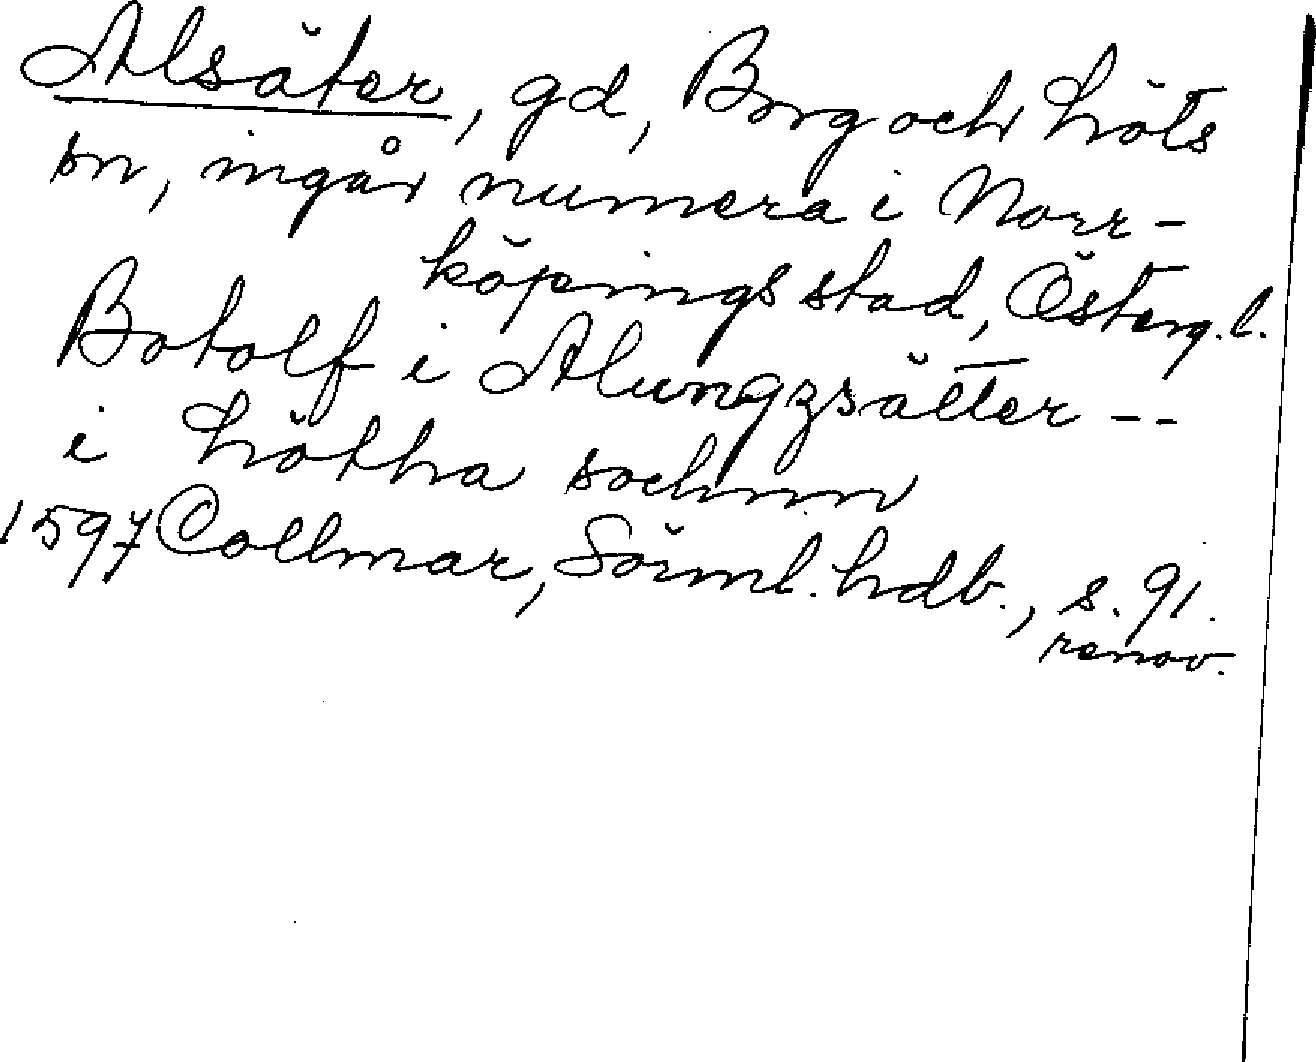 Alsäter, gd, Borg och Löts
sn, ingår numera i Norr-
köpings stad, Österg.l.
Botolf i Alungzsätter --
i Lötha sochnn
1597 Collmar, Sörml. hdb., s. 91.
renov.